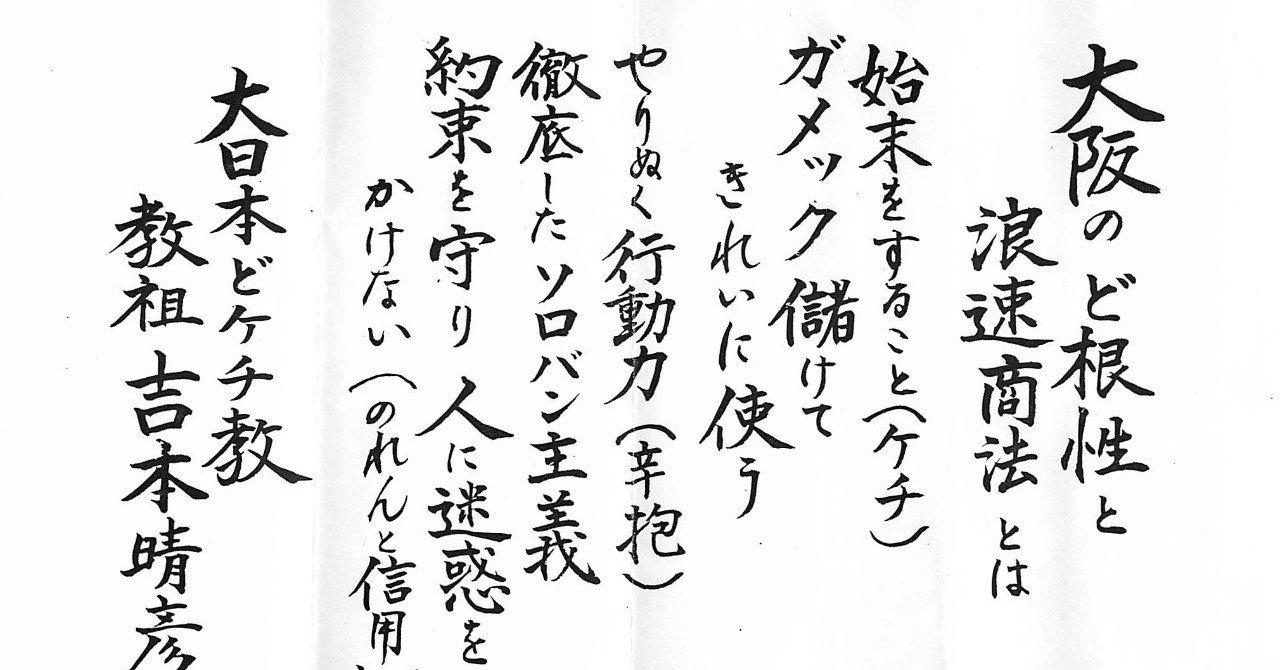 大阪のど根性と
浪速商法とは
始末をすること(ケチ)
ガメック儲けて
きれいに使う
やりぬく行動力(辛抱)
徹底したソロバン主義
約束を守り人に迷惑を
かけない(のれんと信用
大日本どケチ教
教祖吉本晴彦